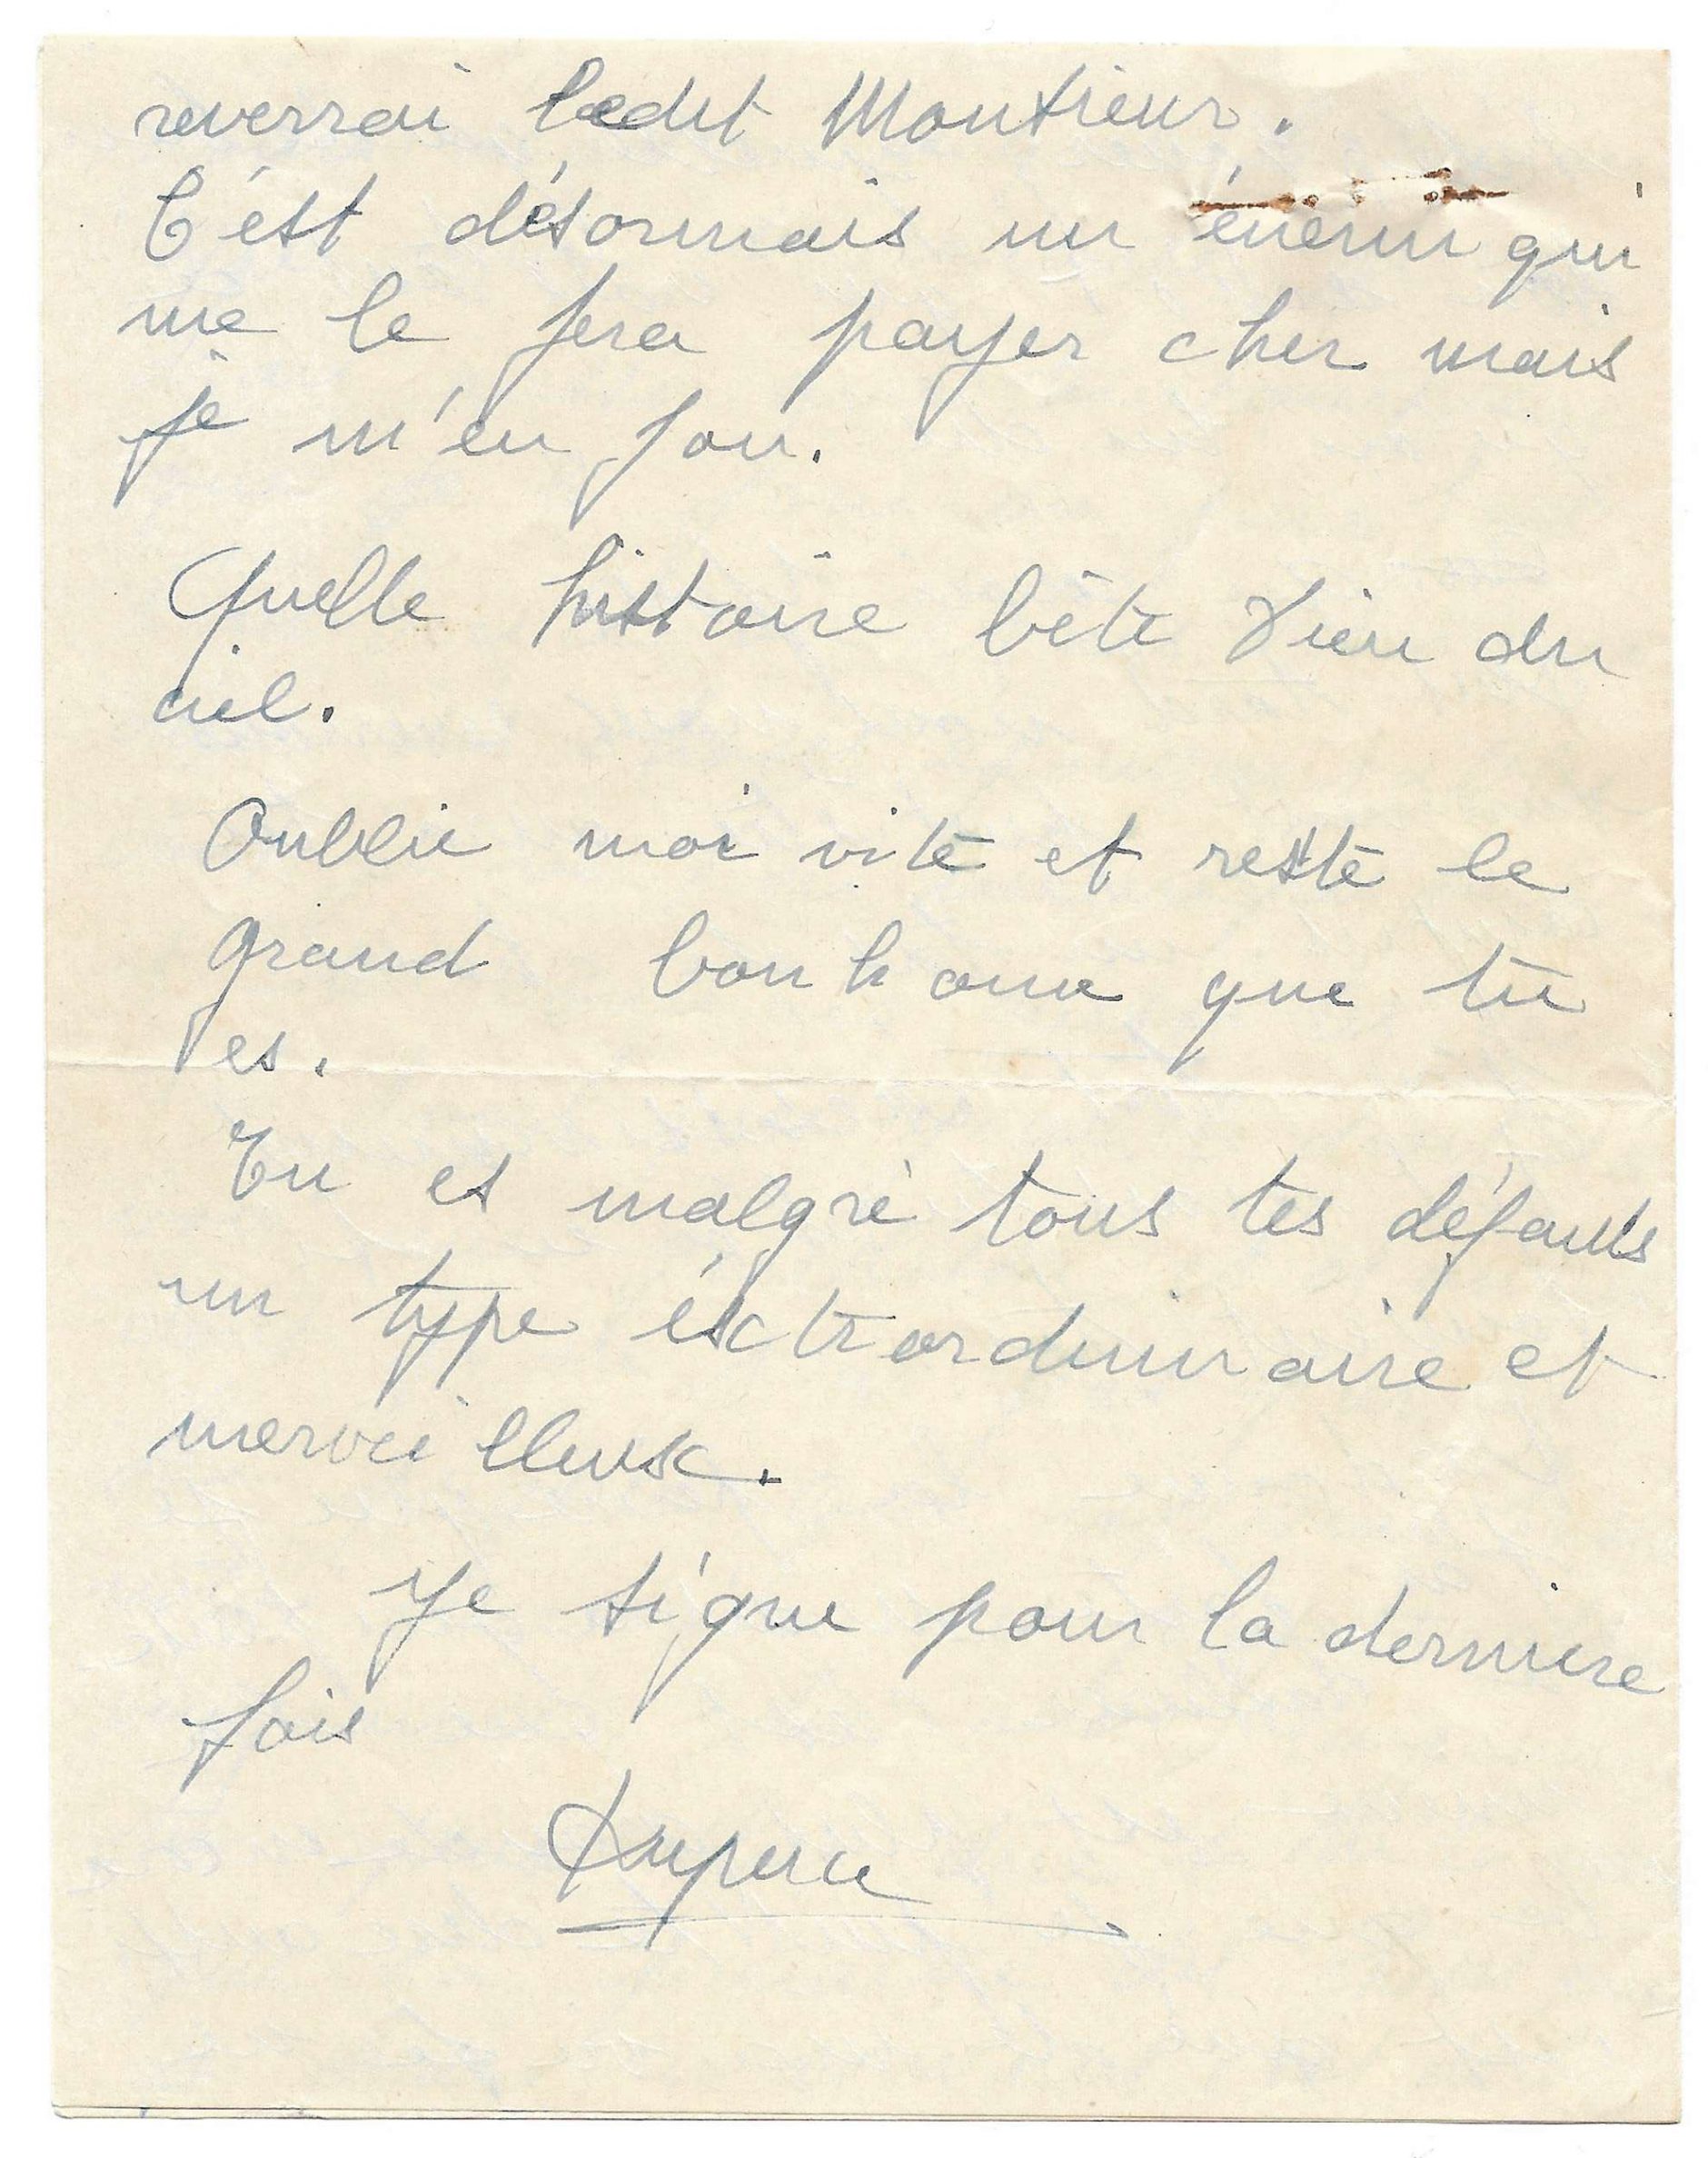 reverrai ledit Monsieur.
C'ést désormais un énemi qui
me le fera payer cher mais
je m'en fou.
Quelle histoire bête Dieu du
ciel.
Oublie moi vite et reste le
grand bonhome que tu
es.
Tu es malgré tous tes défauts
un type éxtraordinnaire et
merveilleux.
Je signe pour la derniere
fois